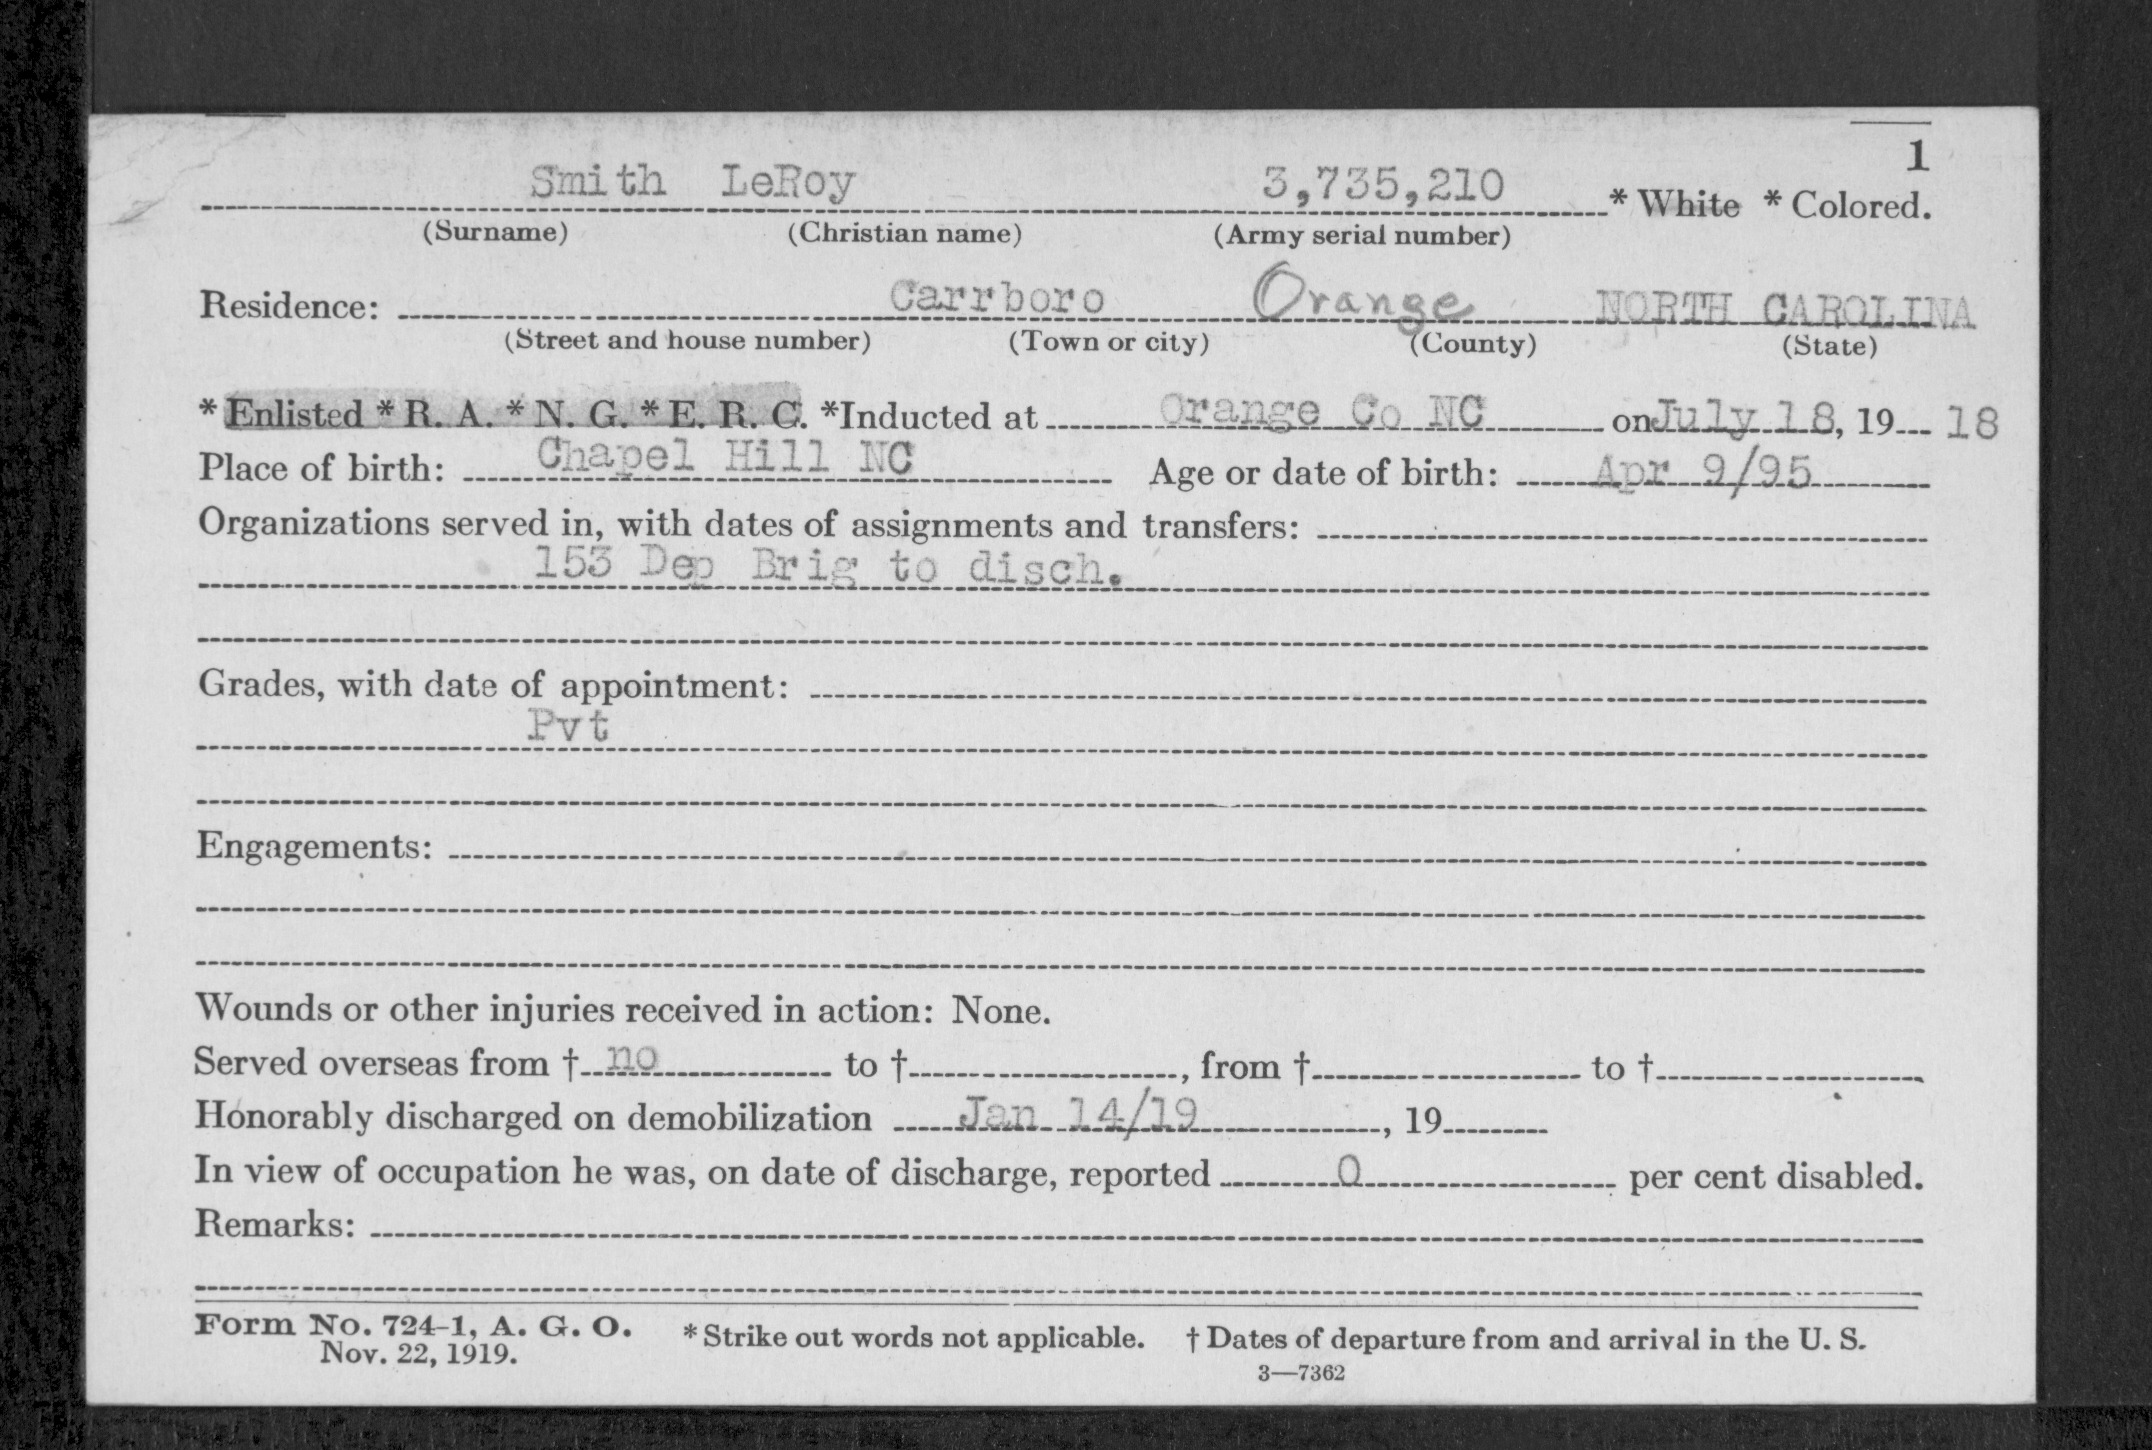 1
Smith LeRoy 3,735,210 * White * Colored.
(Surname) (Christian name) (Army serial number)
Residence: Carrboro Orange NORTH CAROLINA
(Street and house number) (Town or city) (County) (State)
* Enlisted * R. A. * N. G. * E. R. C. *Inducted at Orange Co NC on July 18, 19 18
Place of birth: Chapel Hill NC Age or date of birth: Apr 9/95
Organizations served in, with dates of assignments and transfers:
153 Dep Brig to disch.
Grades, with date of appointment:
Pvt
Engagements:
Wounds or other injuries received in action: None.
Served overseas from † no to †, from † to †
Honorably discharged on demobilization Jan 14/19, 19
In view of occupation he was, on date of discharge, reported 0 per cent disabled.
Remarks:
Form No. 724-1, A. G. O. * Strike out words not applicable. † Dates of departure from and arrival in the U. S.
Nov. 22, 1919.
3—7362